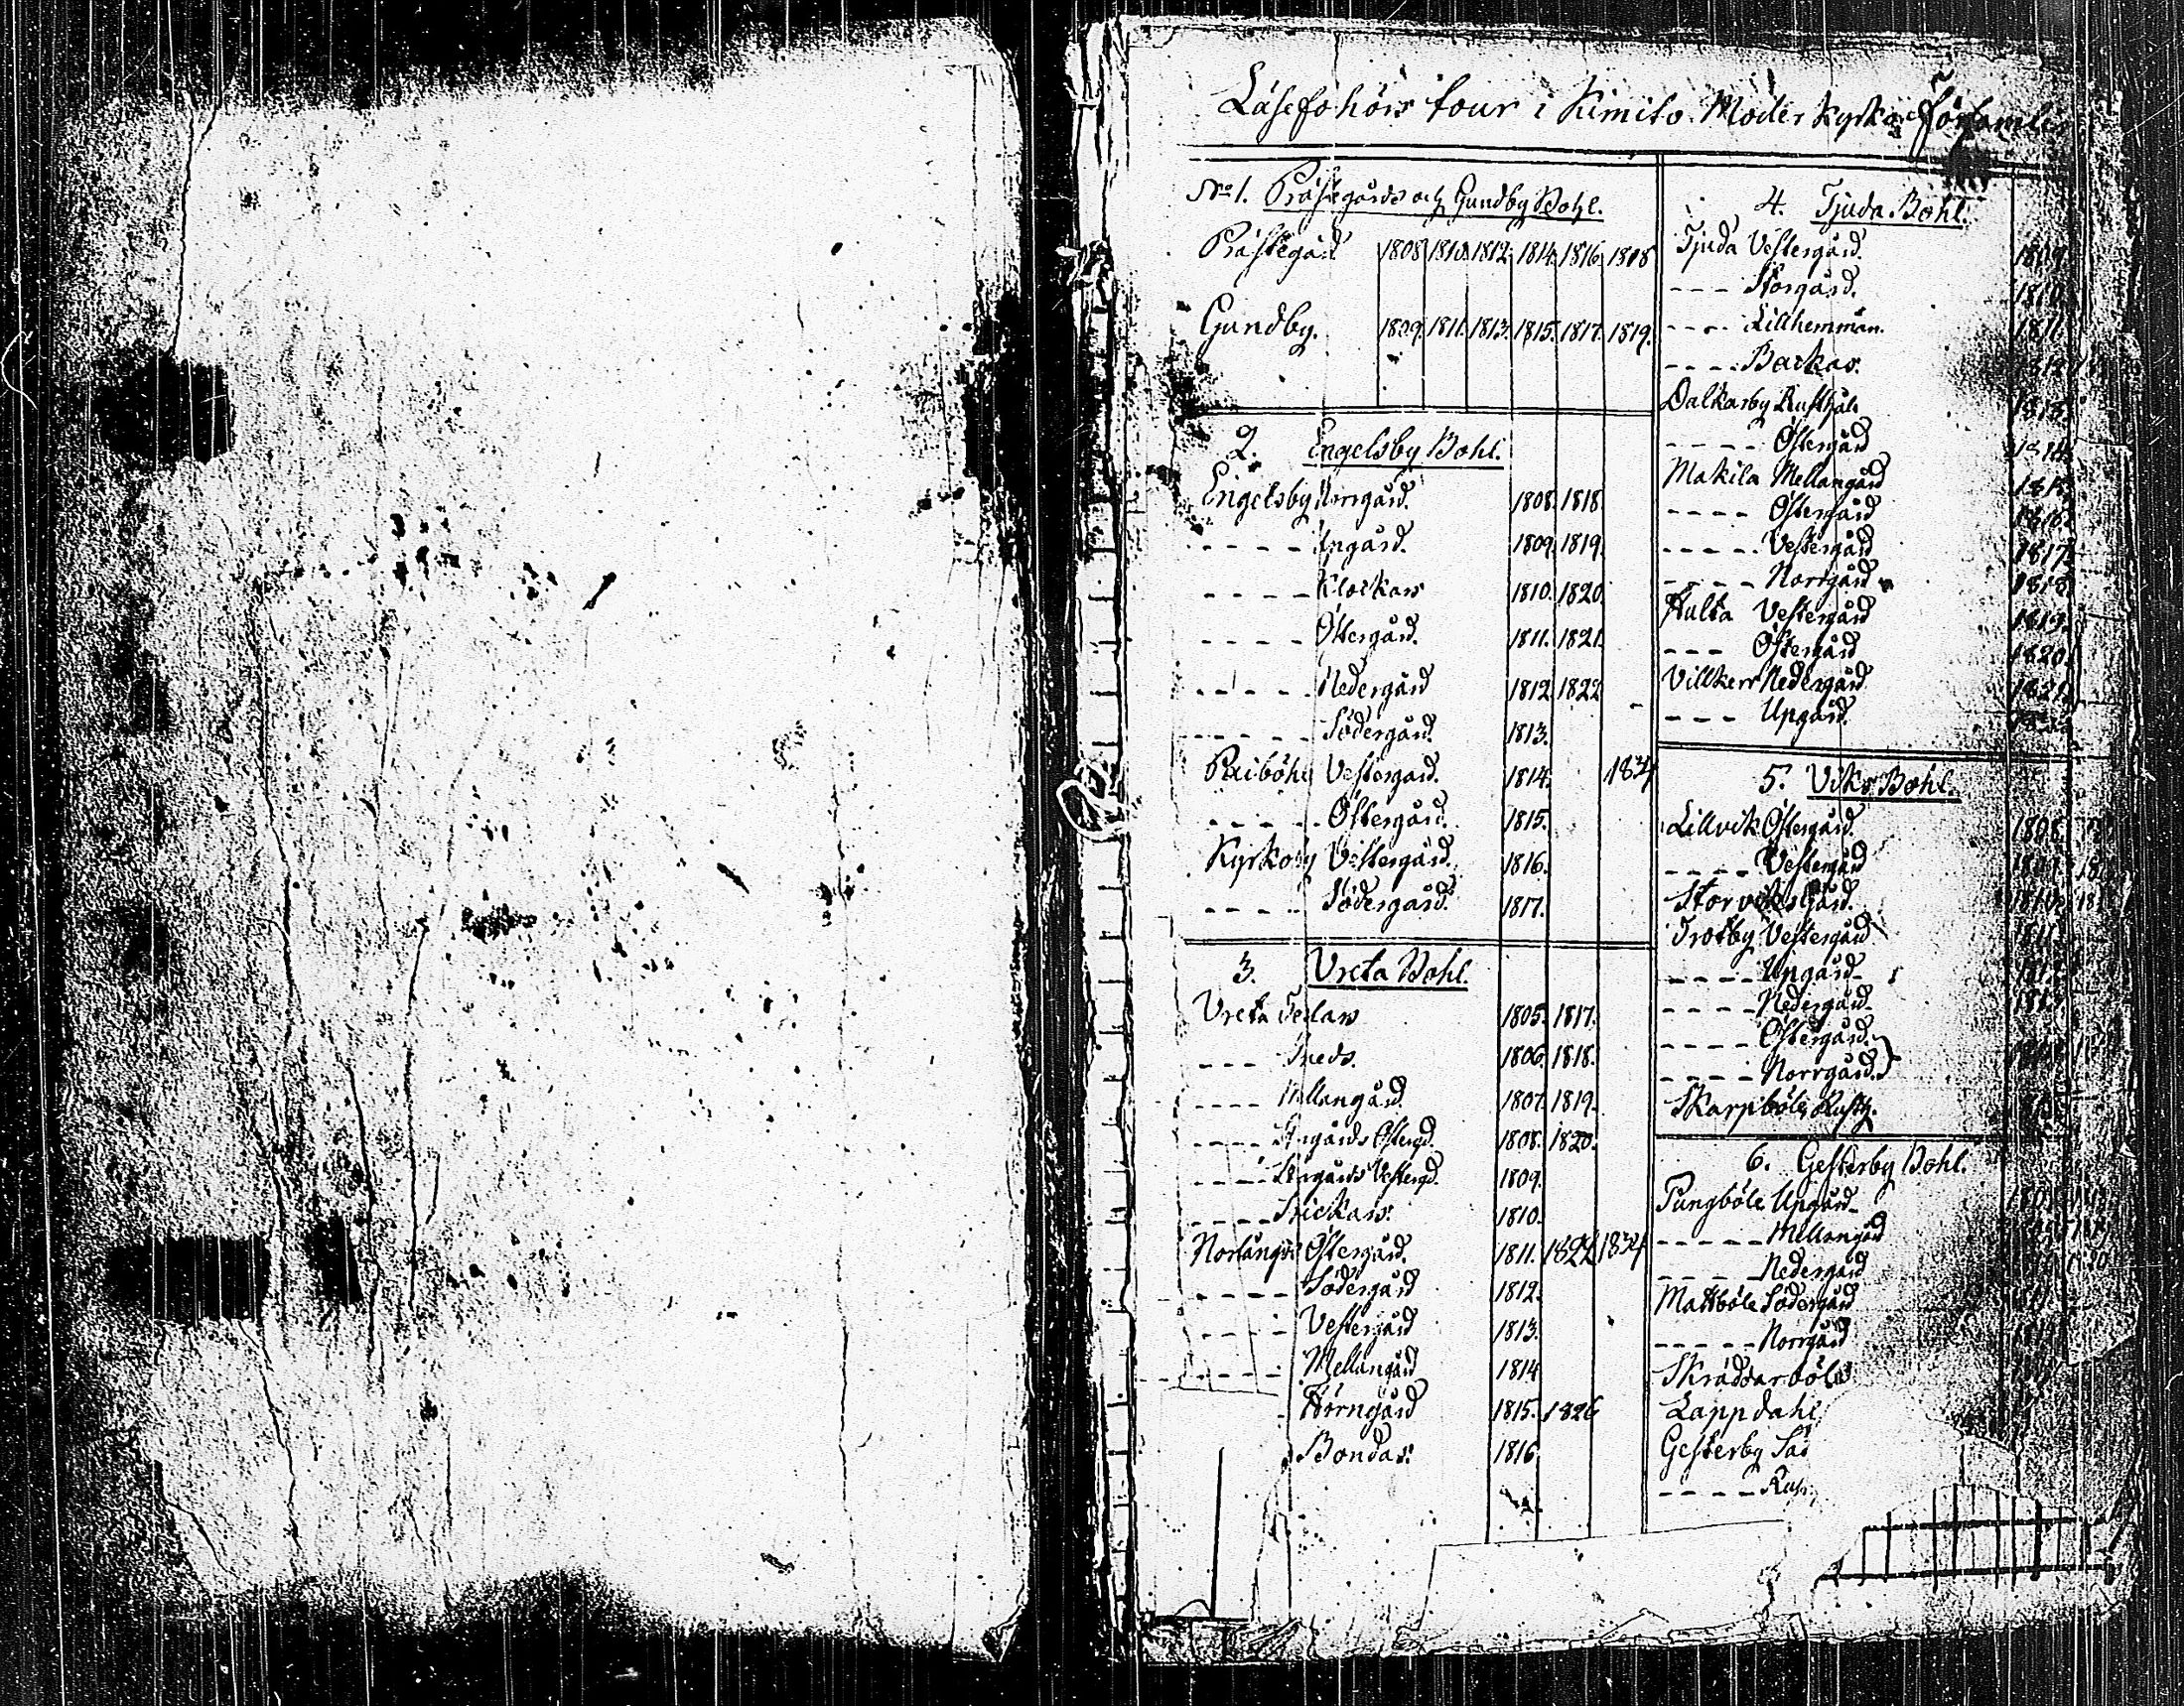 Läseförhörs tour i Kimito Moder Kyrko Församlin
No 1. Prästegårds och Gundby Bohl.
Prästegård 1808 1810 1812 1814 1816 1818
Gundby. 1809. 1811. 1813. 1815. 1817. 1819.
2. Engelsby Bohl.
Engelsby Norrgård. 1808. 1818.
- - - - Ängård. 1809. 1819.
- - - - Klockars 1810. 1820.
- - - - Östergård. 1811. 1821.
- - - - Nedergård 1812 1822
- - - - - Södergård. 1813.
Vestergård. 1814. 1834
- - - - - Östergård. 1815.
Kyrkoby Vestergård. 1816.
- - - - Södergård. 1817.
3. Vreta Bohl.
Vreta 1805. 1817.
- - - 1806. 1818.
- - - - Mellangård. 1807. 1819.
- - - - Östergd. 1808. 1820.
- - - - Vestergd. 1809.
- - - - 1810.
Norlångvik Östergård. 1811. 1822 1834
- - - - - Södergård 1812.
- - - - Vestergård 1813.
- - - - - Mellangård 1814
- Hörngård 1815. 1826
Bondas. 1816
4. Tjuda Bohl.
Tjuda Vestergård. 1809
- - - Storgård. 1810.
- - - - Lillhemman. 1811.
- - - - Backas. 1812
Dalkarby Rusthåll 1813.
- - - - - Östergård 1814.
Makila Mellangård 1815.
- - - - Östergård 1816.
- - - - - Vestergård 1817.
- - - - Norrgård 1818.
Hulta Vestergård 1819.
- - - Östergård 1820.
Villkers Nedergård 1821.
- - - Upgård.
5. Viks Bohl.
Lillvik Östergård. 1808.
- - - - Vestergård 1809
Storviks Gård. 1810.
Trotby Vestergård 1811.
- - - - Upgård 1812
- - - - Nedergård. 1813
- - - - Östergård.
- - - - Norrgård. }
Skarpböle Rusth.
6. Gesterby Bohl.
Pungböle Upgård
- - - - - Mellangård
- - - - Nedergård
Mattböle Södergård
- - - - - Norrgård
Skräddarböle
Lappdahl
Gesterby
- - - - - Rus